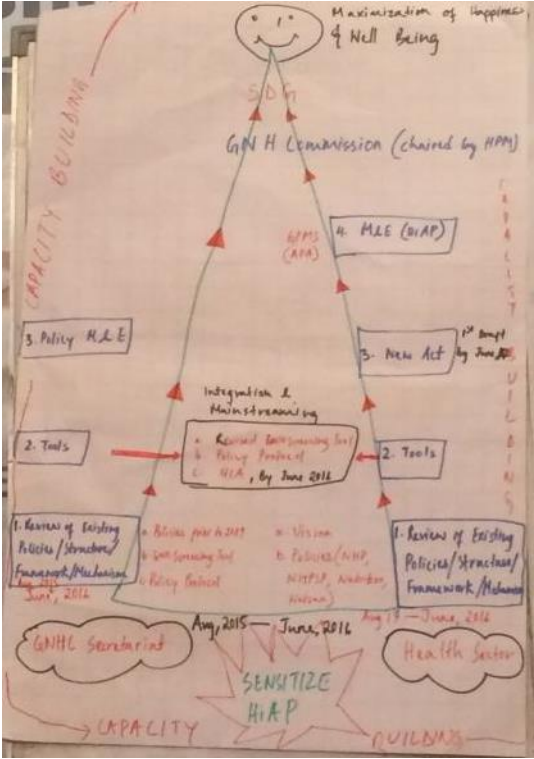 Maximization of Happiness
& Well Being
SDG
GNH Commission (chaired by HPM)
CAPACITY BUILDING
CAPACITY BUILDING
4. M&E (HiAP)
GPMS
(APA)
3. Policy M&E
3. New Act
1st Draft
by June
Integration &
Mainstreaming
a. Revised GNH Screening Tool
b. Policy Protocol
c. , By June 2016
2. Tools
2. Tools
1. Review of Existing
Policies/Structure/
Framework/Mechanism
June, 2016
a. Policies prior to
b. GNH Screening Tool
c. Policy Protocol
a. Vision
b. Policies (NHP,
NHPSP, Nutrition,
1. Review of Existing
Policies/Structure/
Framework/Mechanism
Aug, 2015 — June, 2016
Aug 15 — June, 2016
GNHC Secretariat
Health Sector
SENSITIZE
HiAP
CAPACITY BUILDING